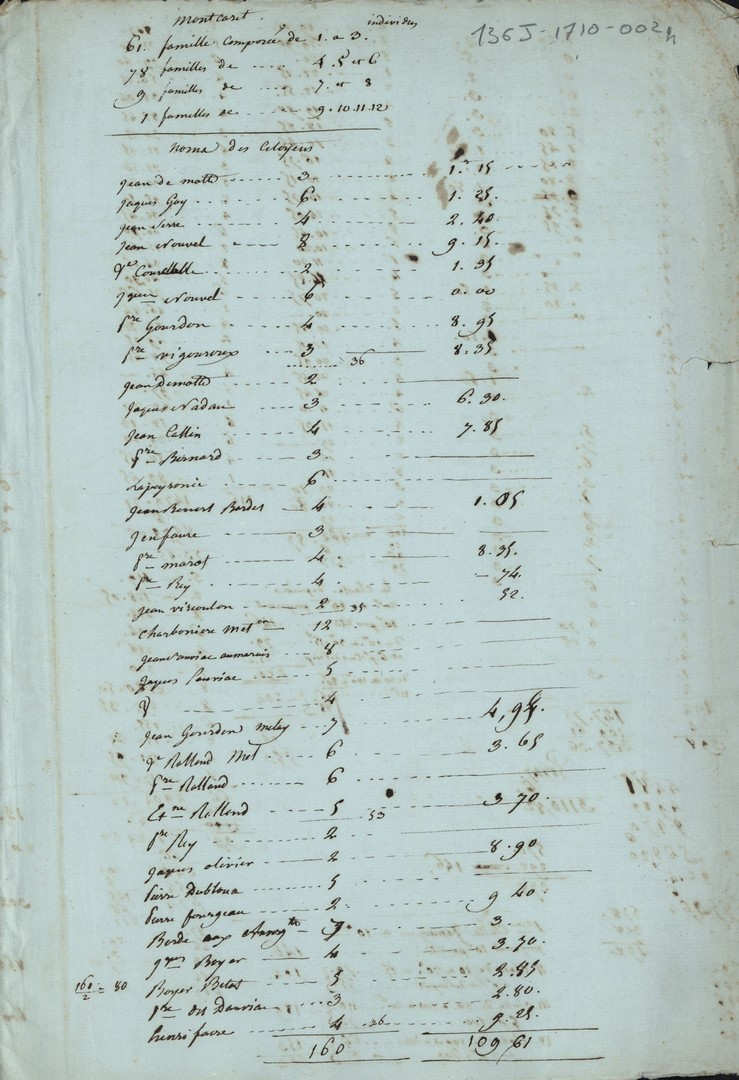 Montcaret. individus
136J-1710-002h
61. famille Composée de 1. a 3.
78 familles de ..... 4. 5 et 6
9 familles de ..... 7. et 8
1 familles de ..... 9. 10. 11. 12
noms des Citoyens
Jean de mothe ..... 3 ..... 1. 15
Jaques Gay ..... 6. ..... 1. 25.
Jean Serre ..... 4 ..... 2. 40
Jean Nouvel ..... 8 ..... 9. 15.
Ve ..... 2 ..... 1. 35
Nouvel ..... 6 ..... 0. 00
Pre Gourdon ..... 4 ..... 8. 95
Pre vigouroux ..... 3 ..... 8. 35
36
Jean Demothe ..... 2
Jaques Nadau ..... 3 ..... 6. 30.
Jean Callin ..... 4 ..... 7. 85
Pre Bernard ..... 3
Lapeyronie ..... 6
Jean Bardet ..... 4 ..... 1. 05
faure ..... 3
Pre marot ..... 4 ..... 8. 35.
Pre Rey ..... 4 ..... 74.
Jean viscoulon ..... 2 35 ..... 52.
Charboniere Met ..... 12
Jean aumarais ..... 8
Jaques Lauriac ..... 5
..... 4
Jean Gourdon ..... 7 ..... 4, 94.
Ve Rolland Met ..... 6 ..... 3. 65
Pre Rolland ..... 6
Etne Rolland ..... 5 53 ..... 3 70.
Pre Rey ..... 2
Jaques olivier ..... 2 ..... 8. 90
Pierre Dubloua ..... 5
Pierre fourgeau ..... 2 ..... 9 40
Borde aux ..... 7 ..... 3.
Boyer ..... 4 ..... 3. 70.
160/2 = 80 Boyer ..... 5 ..... 2. 85
Pre dit Dauriac ..... 3 ..... 2. 80.
henri faure ..... 4 26 ..... 9. 25.
160 109 61